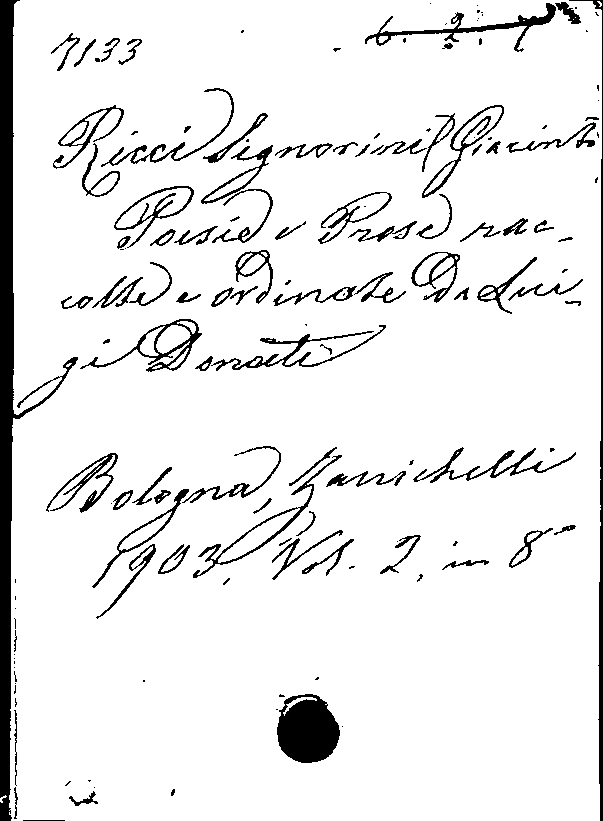 7133 6. 2. 7
Ricci Signorini Giacinto
Poesie e Prose rac-
colte e ordinate Da Lui-
gi Donati
Bologna, Zanichelli
1903, Vol. 2, in 8°